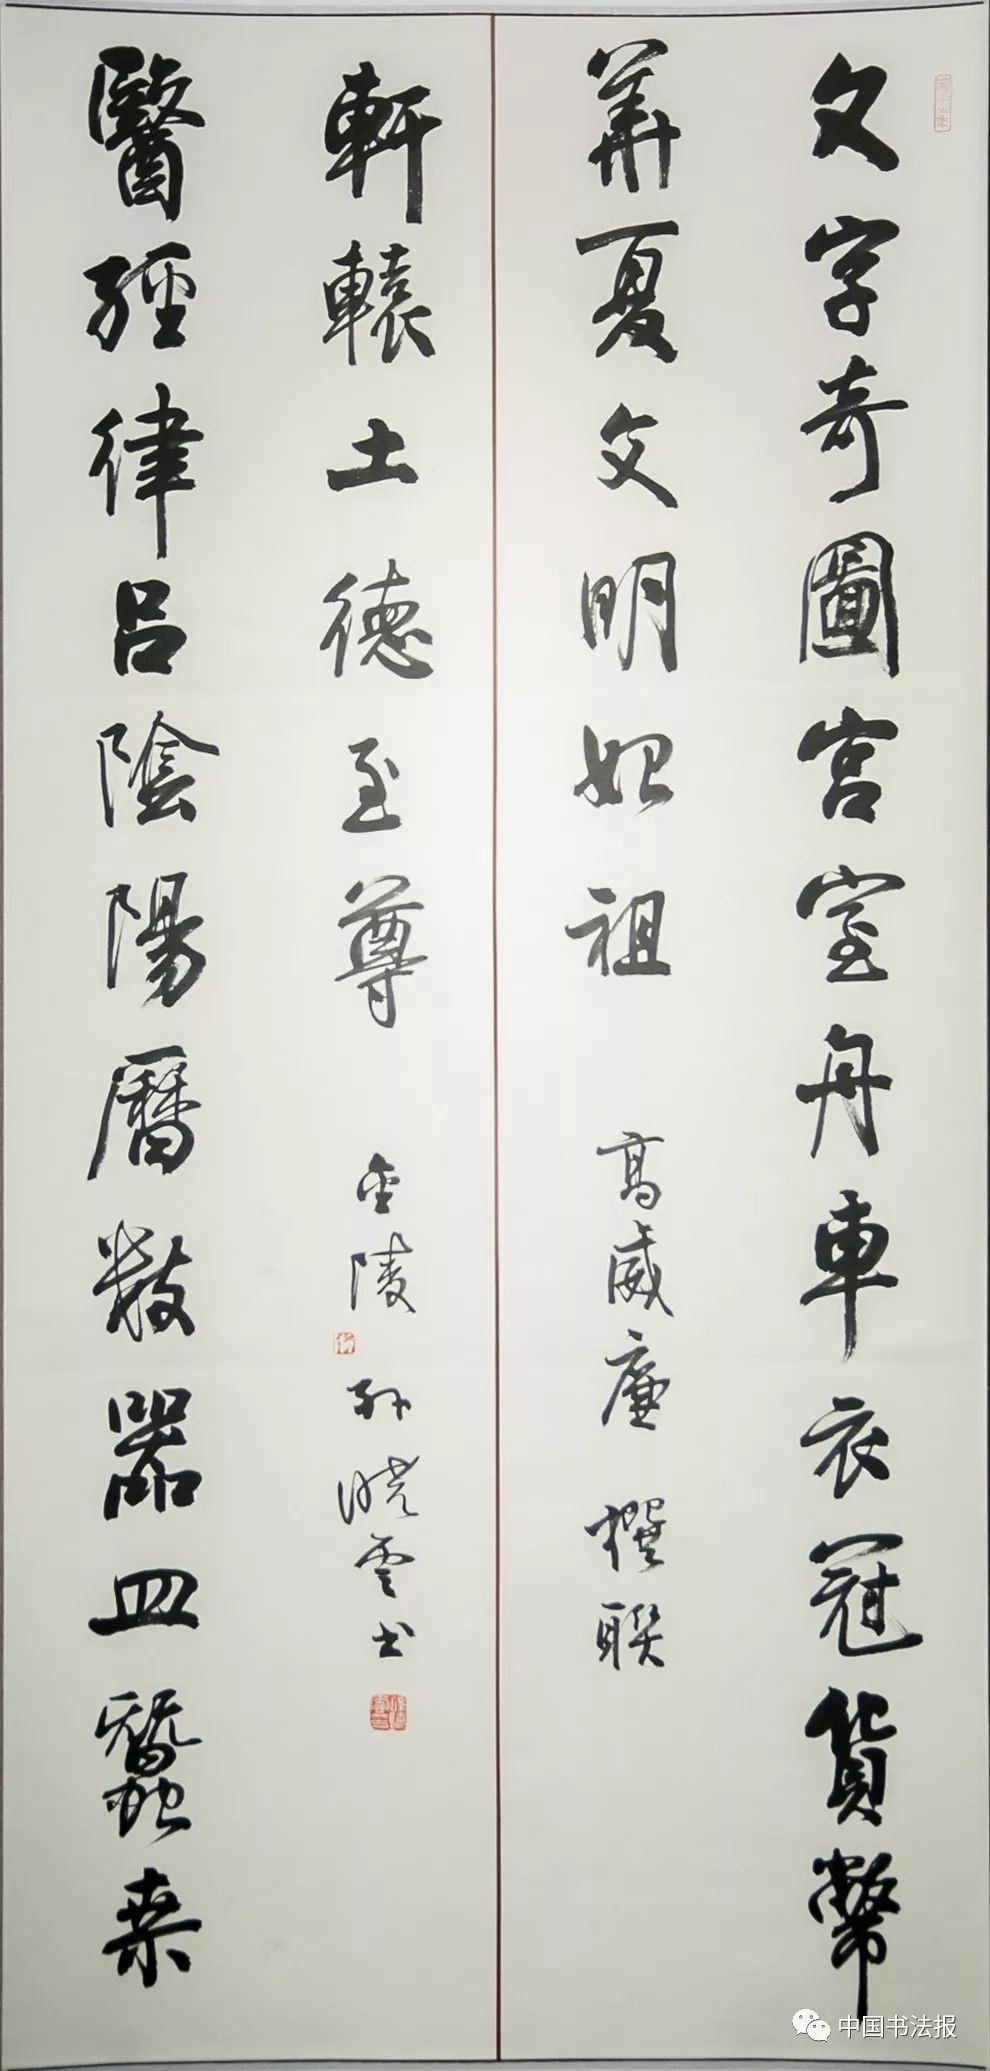 文字奇圖宮室舟車衣冠貨幣
華夏文明始祖
高威廉撰聯
醫經律呂陰陽曆數器皿蠶桑
軒轅土德至尊
金陵孫曉雲书
中国书法报